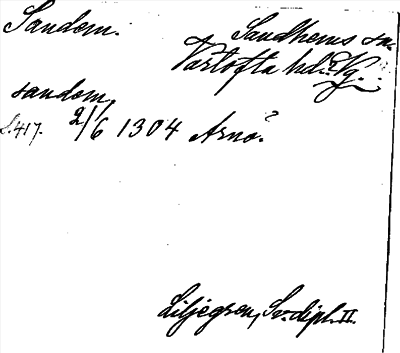 Sandem. Sandhems sn.
Vartofta hd. Vg.
sandem,
s. 417. 2/6 1304 Arnö?
Liljegren, Sv. dipl. II.